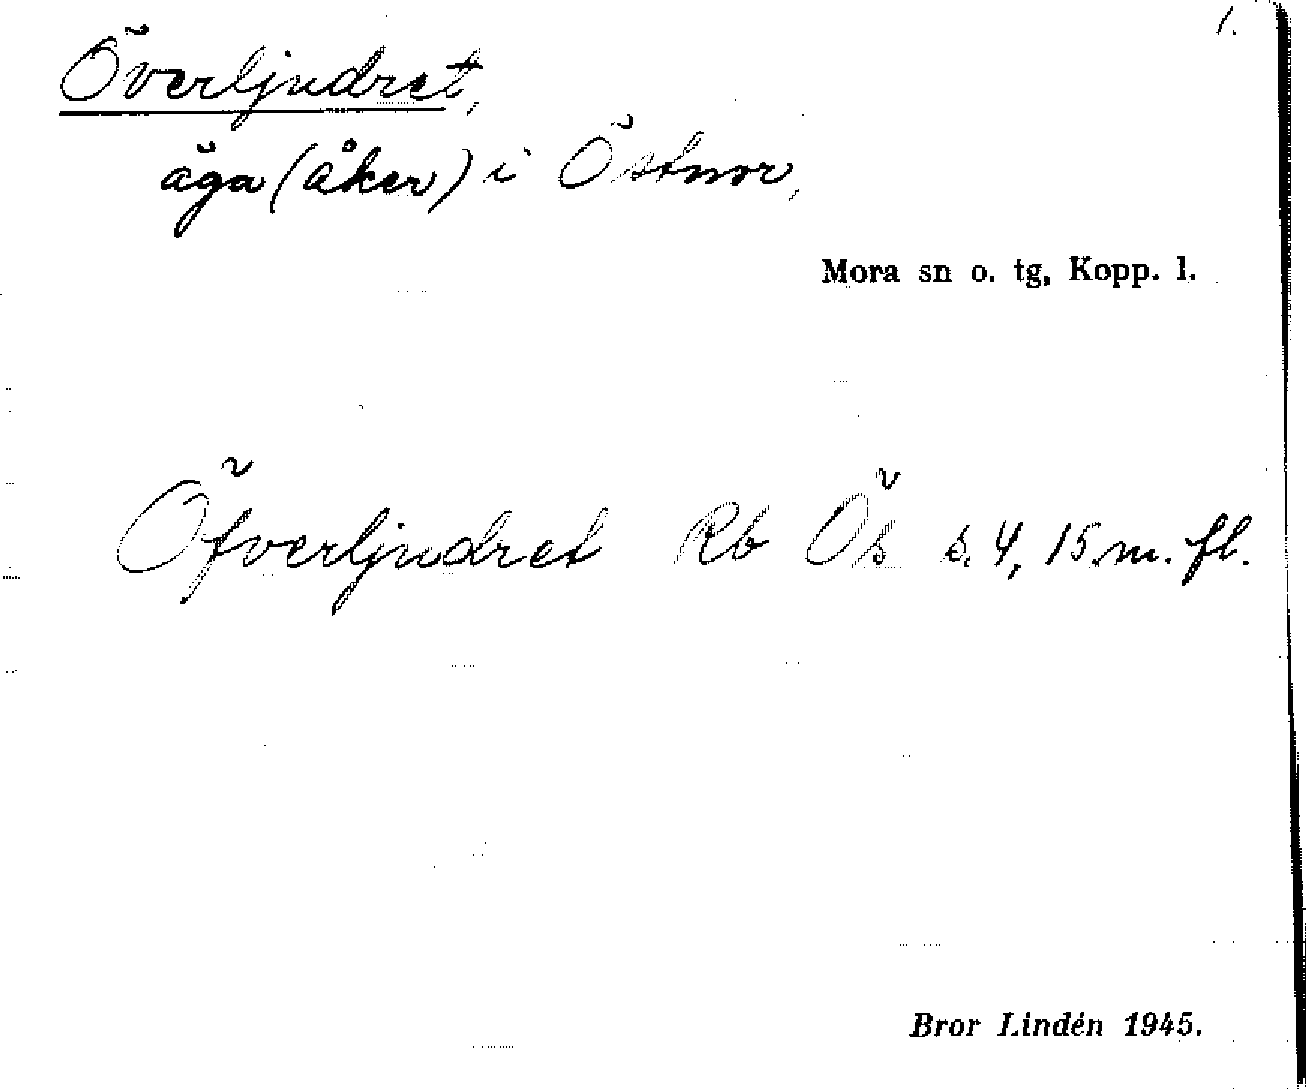 1.
Överljudret,
äga (åker) i Östnor,
Mora sn o. tg, Kopp. l.
Öfverljudret Rb Ös s. 4, 15 m. fl.
Bror Lindén 1945.